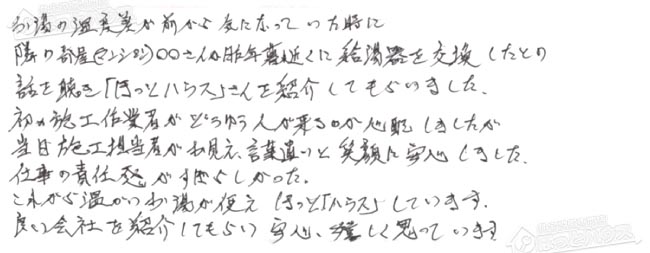 お湯の温度差が前から気になっていた時に
隣の部屋(マンション)○○さんが昨年暮近くに給湯器を交換したとの
話を聴き「ほっとハウス」さんを紹介してもらいました。
初め施工作業者がどうゆう人が来るのか心配しましたが
当日施工担当者がお見え、言葉遣いと笑顔に安心しました。
仕事の責任感がすばらしかった。
これから温かいお湯が使え ほっと「ハウス」しています。
良い会社を紹介してもらい安心、嬉しく思っています